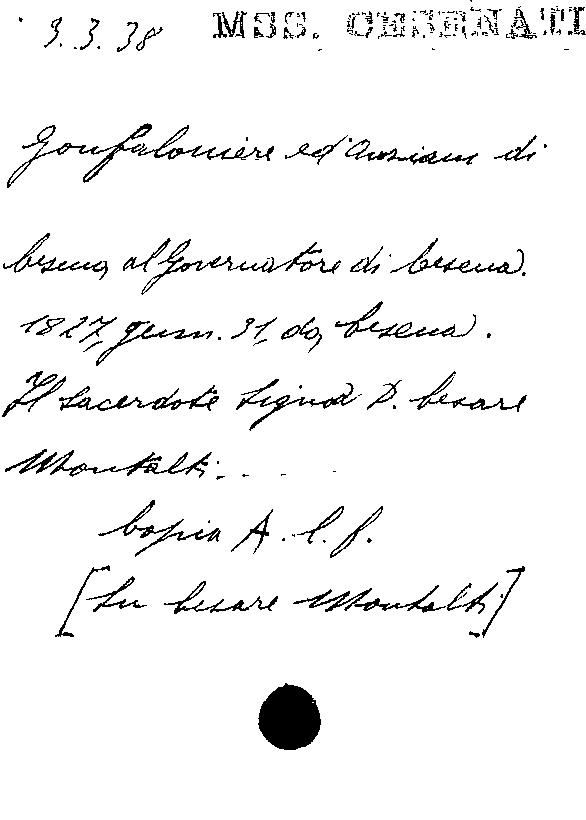 3.3.38 MSS. CESENATI
Gonfaloniere ed Anziani di
Cesena, al Governatore di Cesena.
1827, genn. 31, da, Cesena.
Il Sacerdote Signor D. Cesare
Montalti. . . . .
Copia A. C. f.
[Su Cesare Montalti]